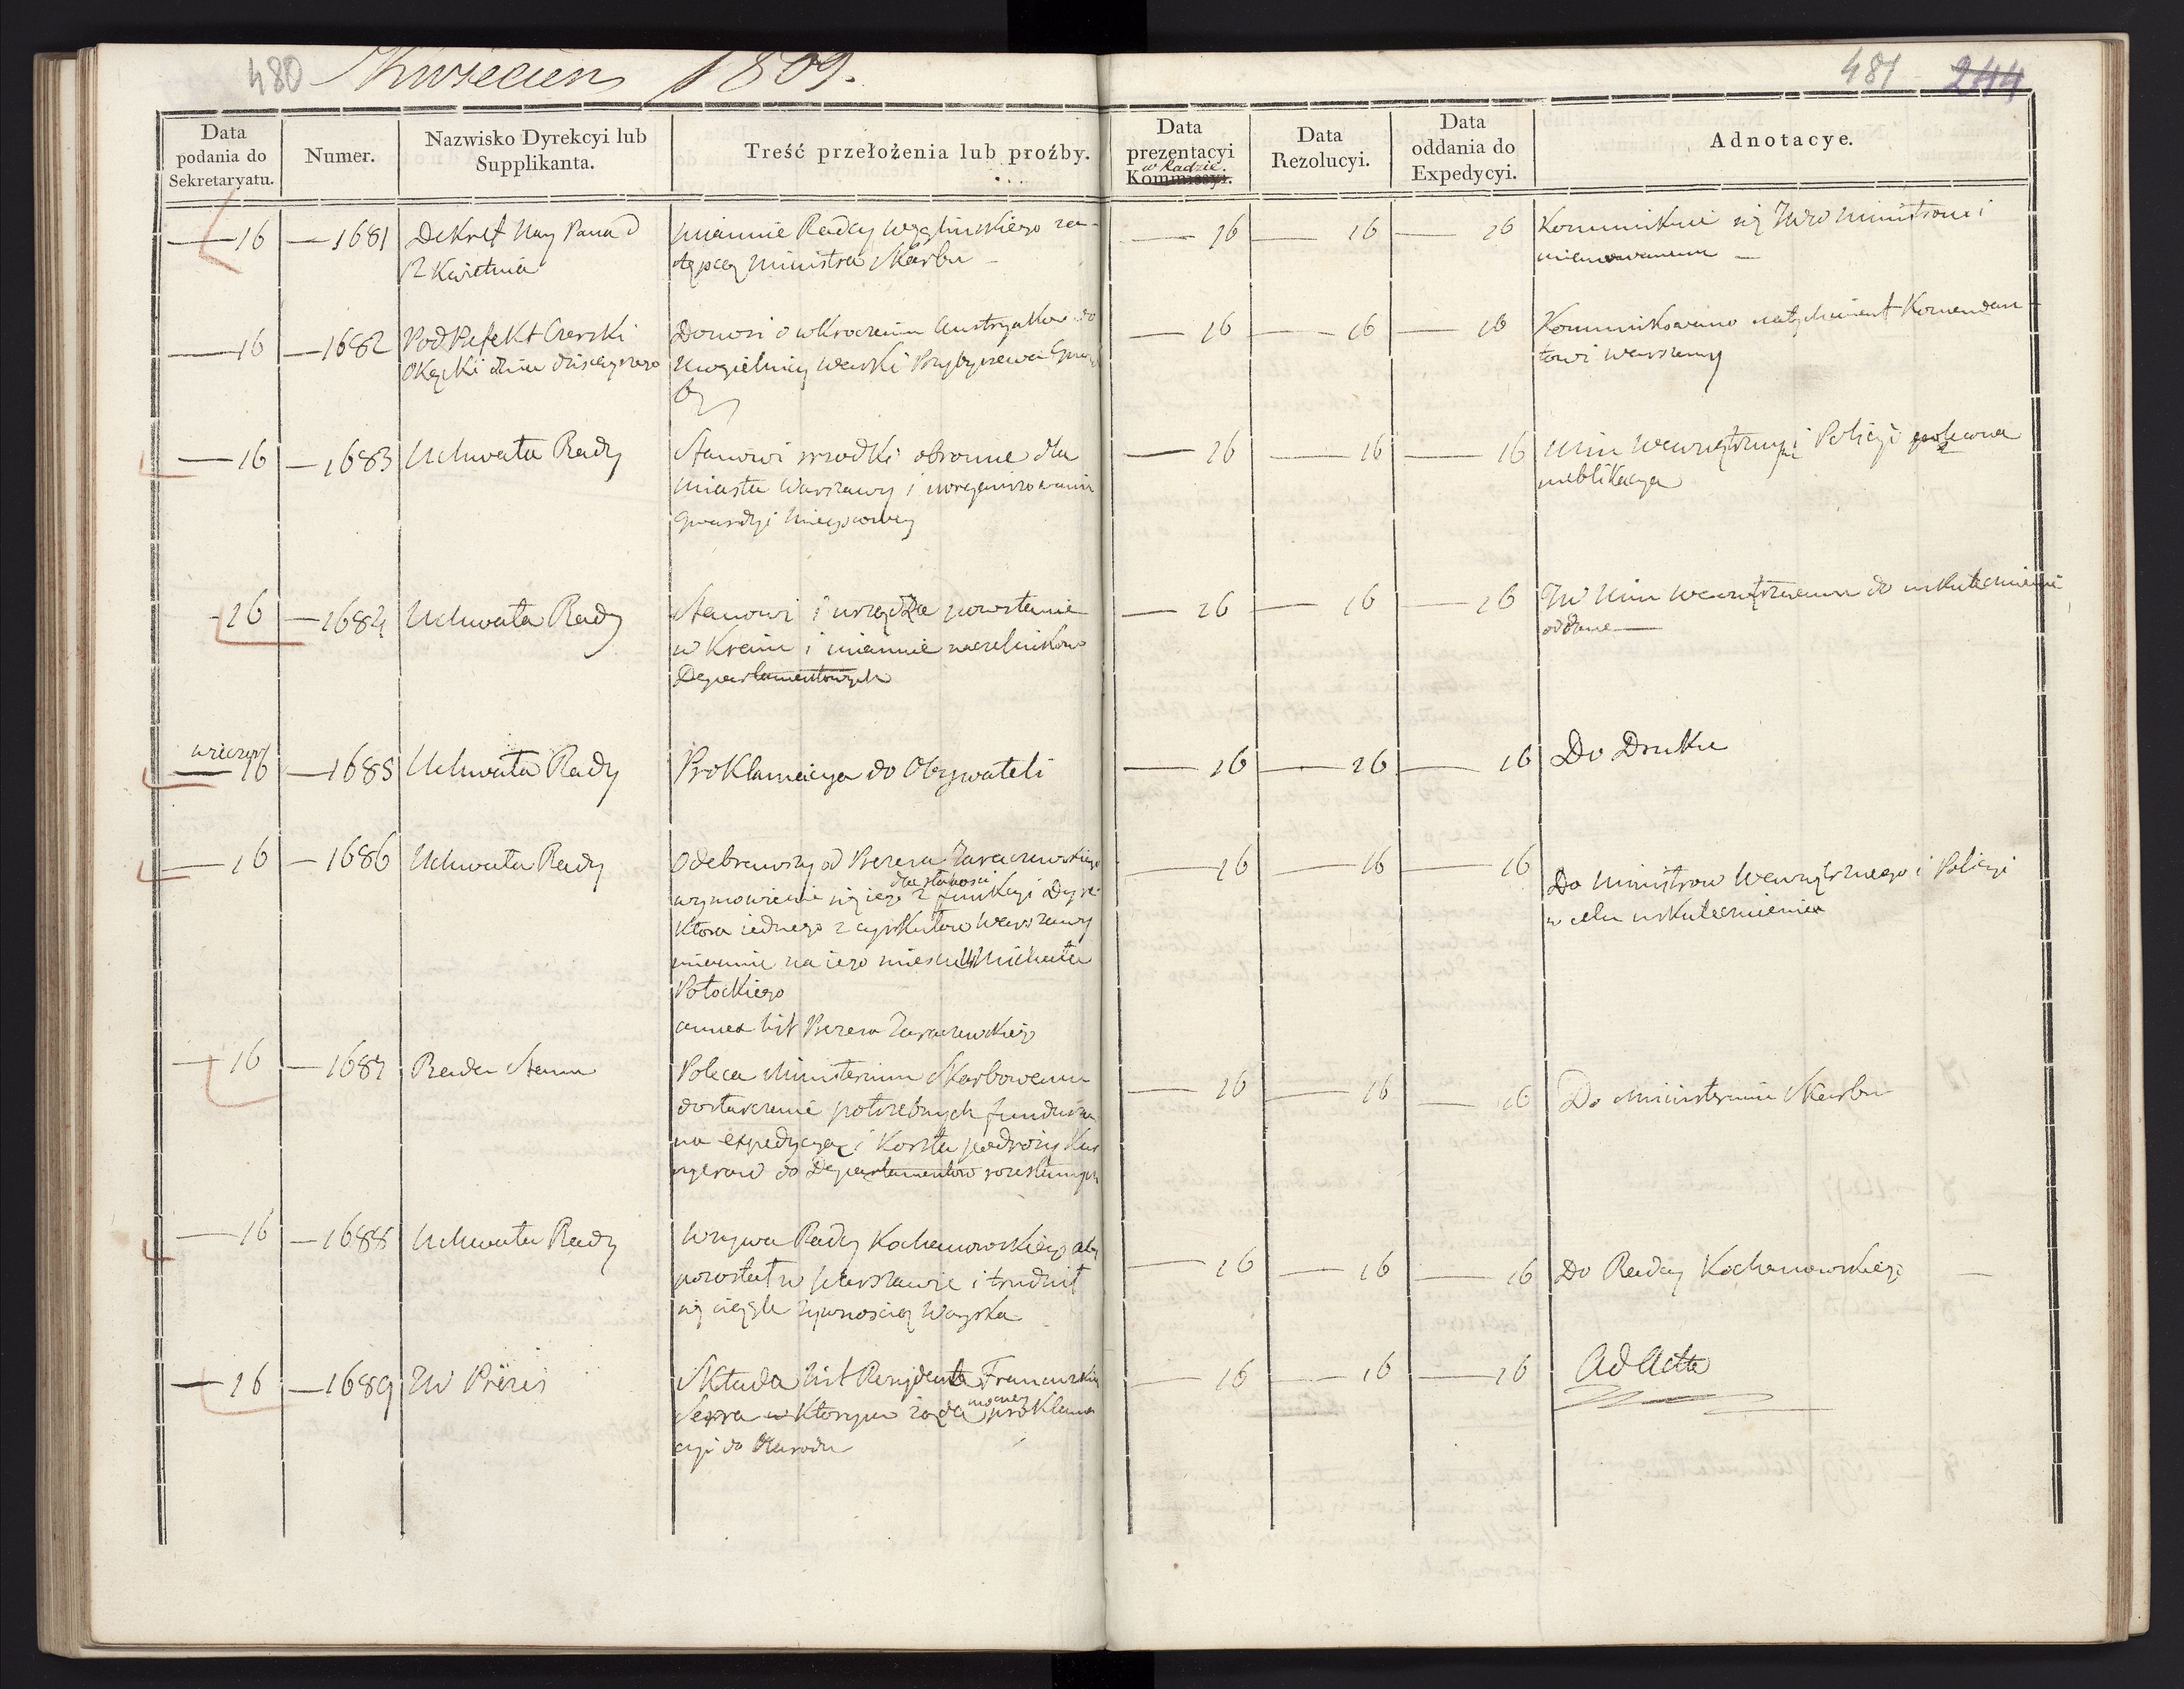 480 Kwiecień 1809.
481 244
Data podania do Sekretaryatu.
Numer.
Nazwisko Dyrekcyi lub Supplikanta.
Treść przełożenia lub proźby.
Data prezentacyi w Radzie. Kommissyi.
Data Rezolucyi.
Data oddania do Expedycyi.
Adnotacye.
16 — 1681 Dekret Nay Pana d
12 Kwietnia
mianuie Radcę Węglińskiego za-
stępcą Ministra Skarbu —
— 16 — 16 — 16
Kommunikuie się JWo Ministrowi
mianowanemu —
— 16 — 1682 PodPrefekt Czerski
Okęcki dnia dzisieyszego
Donosi o wkroczeniu Austryaków do
Nowego
— 16 — 16 — 16
Kommunikowano natychmiast Komendan-
towi Warszawy
— 16 — 1683 Uchwała Rady
Stanowi srzodki obronne dla
Miasta Warszawy i uorganizowania
Gwardyi Mieyscowey
— 16 — 16 — 16
Min Wewnętrzny i Policyi polecona
publikacya
— 16 — 1684 Uchwała Rady
Stanowi i urządza powstanie
w Kraiu i mianuie naczelników
Departamentowych
— 16 — 16 — 16
JW Min Wewnętrznemu do uskutecznienia
oddane —
wieczor
— 16 — 1685 Uchwała Rady
Proklamacya do Obywateli
— 16 — 16 — 16
Do Druku
— 16 — 1686 Uchwała Rady
Odebrawszy od Prezesa Zaraczewskiego
dla słabości
wymowienie się iego z funkcyi Dyre
ktora iednego z cyrkułów Warszawy
mianuie na iego mieysce Michała
Potockiego
annex list Prezesa Zaraczewskiego
— 16 — 16 — 16
Do Ministrow Wewnętrznego i Policyi
w celu uskutecznienia
— 16 — 1687 Rada Stanu
Poleca Ministerium Skarbowemu
dostarczenie potrzebnych funduszow
na expedycyą i koszta podroży Kur
yerow do Departamentow rozesłanych
— 16 — 16 — 16
Do Ministerium Skarbu
— 16 — 1688 Uchwała Rady
Wzywa Radcę Kochanowskiego aby
pozostał w Warszawie i trudnił
się ciągle żywnością Woyska
— 16 — 16 — 16
Do Radcy Kochanowskiego —
— 16 — 1689 JW Prezes
Składa list Rezydenta Francuzkiego
mocney
Serra w którym żąda proklama
cyi do Narodu
— 16 — 16 — 16
Ad Acta